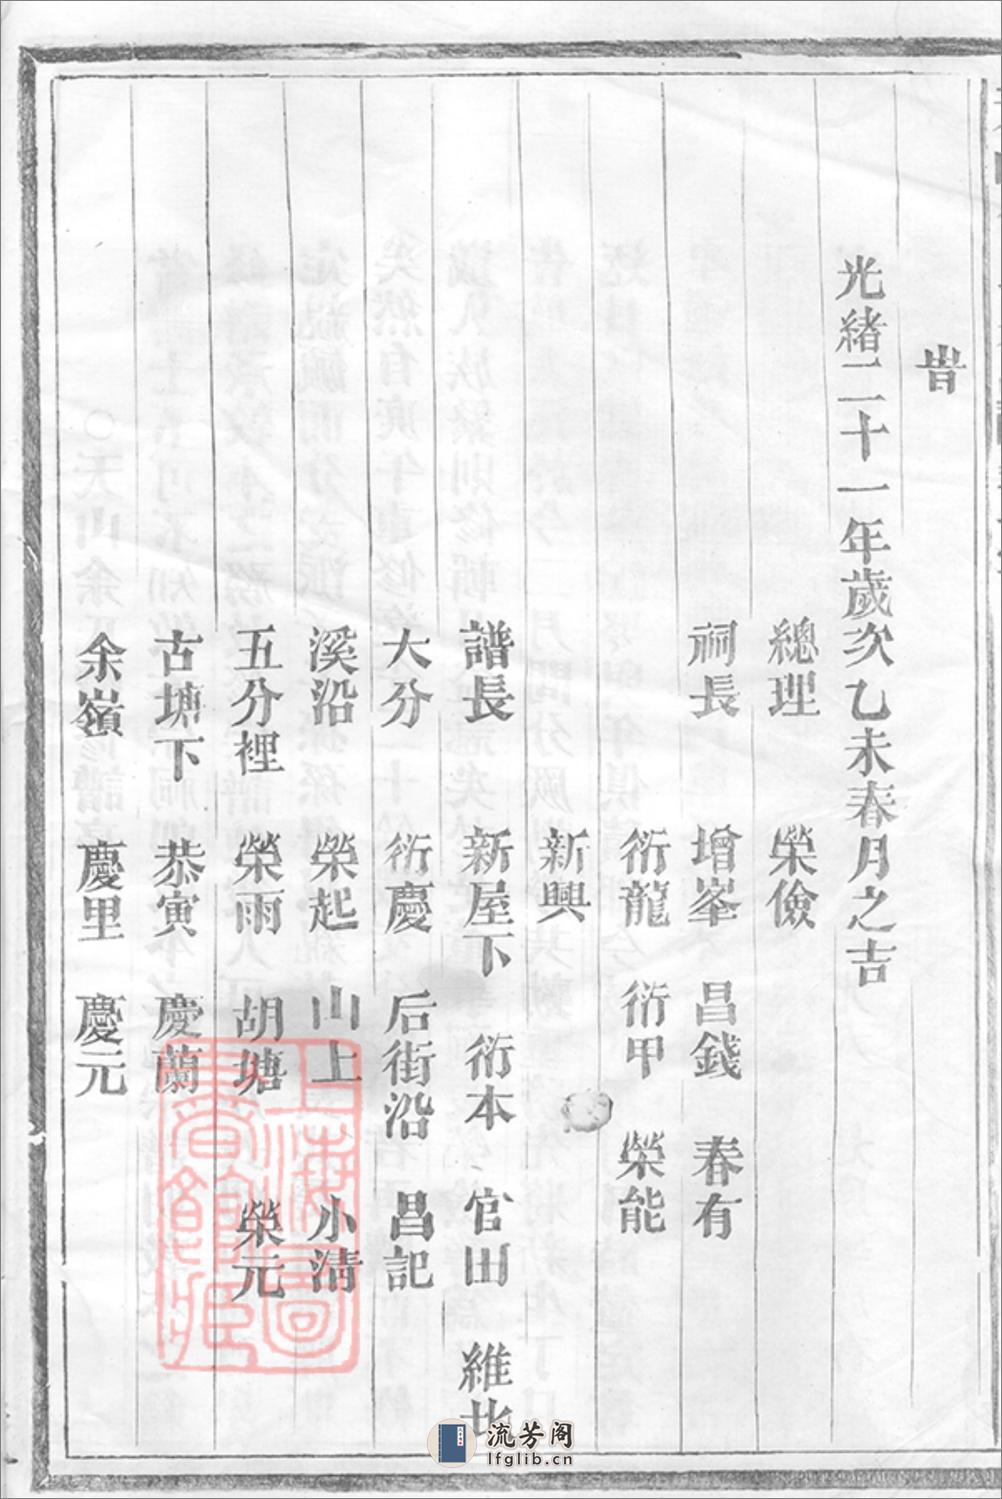 旹
光緒二十一年歲次乙未春月之吉
總理 榮儉
祠長 增峯 昌錢 春有
衍龍 衍甲 榮能
新興
譜長 新屋下 衍本 官田 維北
大分 衍慶 后街沿 昌記
溪沿 榮起 山上 小清
五分裡 榮雨 胡塘 榮元
古塘下 恭寅 慶蘭
余嶺 慶里 慶元
上海圖書館藏
流芳阁
lfglib.cn